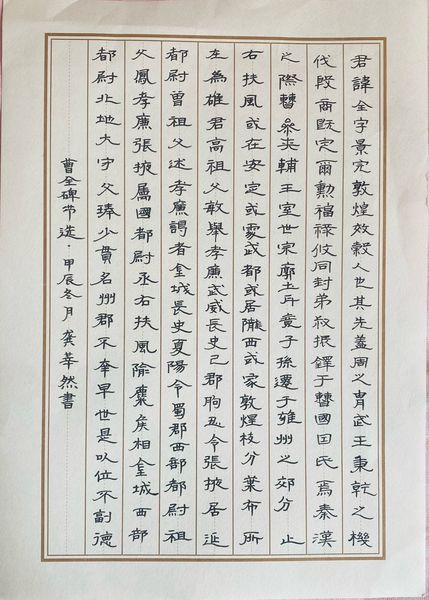 君諱全字景完敦煌效穀人也其先蓋周之胄武王秉乾之機
伐殷商既定爾勳福祿攸同封弟叔振鐸于曹國因氏焉秦漢
之際曹參夾輔王室世宗廓土斥竟子孫遷于雍州之郊分止
右扶風或在安定或處武都或居隴西或家敦煌枝分葉布所
在為雄君高祖父敏舉孝廉武威長史巴郡朐忍令張掖居延
都尉曾祖父述孝廉謁者金城長史夏陽令蜀郡西部都尉祖
父鳳孝廉張掖屬國都尉丞右扶風隃麋侯相金城西部
都尉北地大守父琫少貫名州郡不幸早世是以位不副德
曹全碑节選·甲辰冬月龔然書